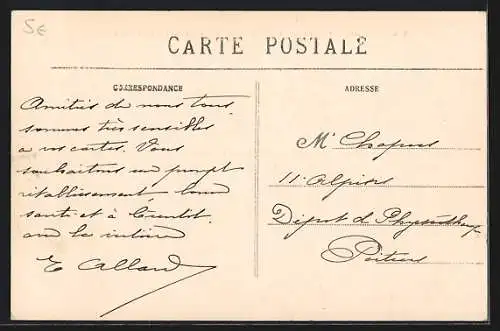 5€
CARTE POSTALE
CORRESPONDANCE
ADRESSE
Amitiés de nous tous
sommes très sensibles
à vos cartes. Vous
souhaitons un prompt
rétablissement bonne
santé et à bientôt.
E Allard
Mr Chapus
11e Alpins
Dépot de Physiothérapie
Poitiers